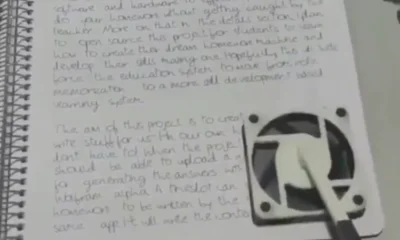 software and hardware to
do your homework without getting caught by the
teacher. More on that in the details section. I plan
to open source this project for students to learn
how to create their dream homework machine and
develop their skill making one. Hopefully this do
force the education system to move from rote
memorization to a more skill development based
learning system.
The aim of this project is to
write stuff for us in our own
don't have to. When the project
should be able to upload
for generating the answers
alpha. A
homework to be written by the
same app. It will write the